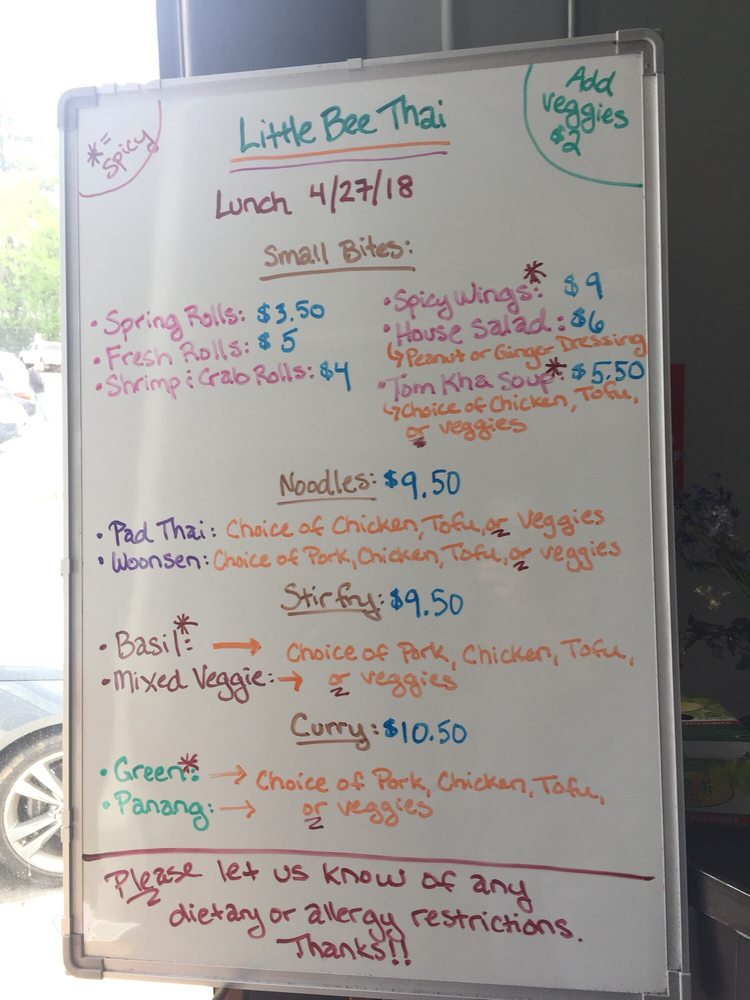 *= spicy
Little Bee Thai
Add
veggies
$2
Lunch 4/27/18
Small Bites:
• Spring Rolls: $3.50
• Fresh Rolls: $5
• Shrimp & Crab Rolls: $4
• Spicy Wings*: $9
• House Salad: $6
↳ Peanut or Ginger Dressing
• Tom Kha Soup*: $5.50
↳ Choice of Chicken, Tofu,
or veggies
Noodles: $9.50
• Pad Thai: Choice of Chicken, Tofu, or veggies
• Woonsen: Choice of Pork, Chicken, Tofu, or veggies
Stir fry: $9.50
• Basil*: → Choice of Pork, Chicken, Tofu,
• Mixed Veggie: → or veggies
Curry: $10.50
• Green*: → Choice of Pork, Chicken, Tofu,
• Panang: → or veggies
Please let us know of any
dietary or allergy restrictions.
Thanks!!